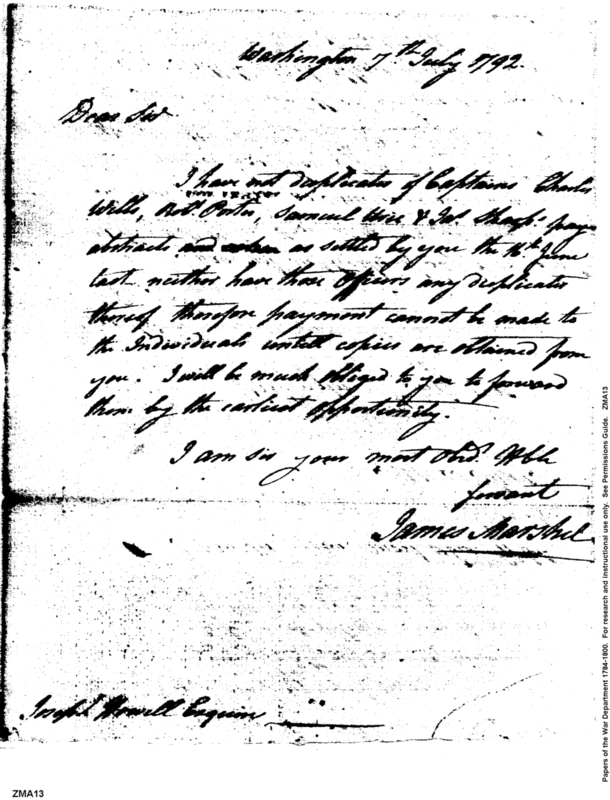 Washington 7th July 1792.
Dear Sir
I have not duplicates of Captains Charles
Wells, Robt. Porter, Samuel & Jas. Sharps pay
abstracts as settled by you the 16th June
last neither have those Officers any duplicates
thereof therefore payment cannot be made to
the Individuals untill copies are obtained from
you. I will be much obliged to you to forward
them by the earliest opportunity.
I am sir your most Obdt. Hble
servant
James Marshel
Joseph Howell Esquire
ZMA13
Papers of the War Department 1784-1800. For research and instructional use only. See Permissions Guide. ZMA13